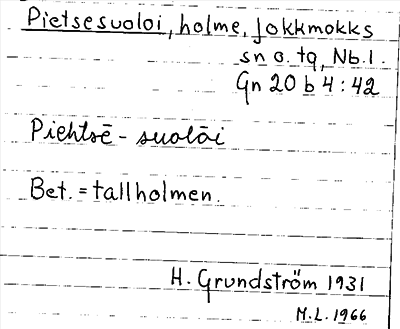 Pietsesuoloi, holme, Jokkmokks
sn o. tq, Nb.l.
Gn 20 b 4:42
Piehtsē - suolāi
Bet. = tallholmen.
H. Grundström 1931
M.L. 1966